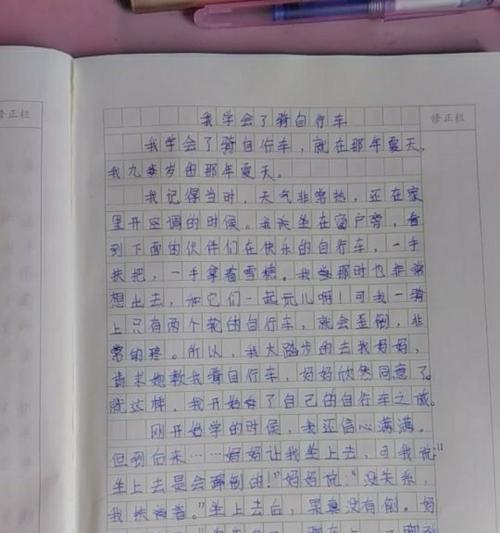 修正栏
修正栏
我学会了骑自行车
我学会了骑自行车，就在那年夏天，
我九岁的那年夏天。
我记得当时，天气非常热，还在家
里开空调的时候。我坐在窗户旁，看
到下面的伙伴们在快乐的自行车，一手
扶把，一手拿着雪糕。我当那时也非常
想出去，和它们一起玩儿啊！可我一骑
上只有两个轮的自行车，就会歪倒，非
常的疼。所以，我大踏步的去找妈妈，
请求她教我骑自行车，妈妈欣然同意了。
就这样，我开始了自己的自行车之旅。
刚开始学的时候，我还信心满满。
但到后来……妈妈让我坐上去，可我说：“
坐上去是会摔倒的！”妈妈说：“没关系，
我扶着。”坐上去后，果真没有倒。妈